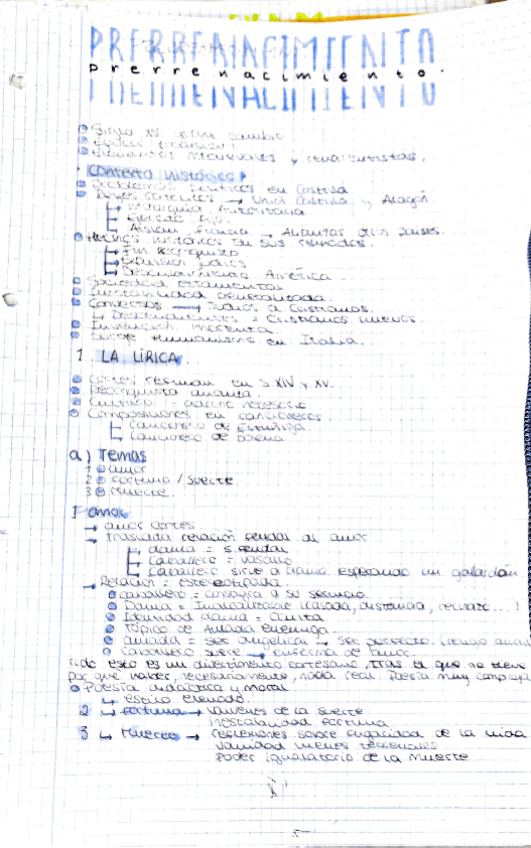 PRERRENACIMIENTO
prerrenacimiento.
Siglo XV cambio
Elementos medievales y renacentistas.
Contexto histórico
Problemas en Castilla
Reyes Católicos → Unión Castilla y Aragón
Monarquía Autoritaria
Ejército
Aíslan Francia → Alianzas otros países.
Hechos históricos en sus reinados.
Fin reconquista
Expulsión judíos
Descubrimiento América.
Sociedad estamental
Inestabilidad generalizada.
Conversos → Judíos a Cristianos.
Descendientes = Cristianos nuevos.
Invención imprenta
Surge Humanismo en Italia.
1. LA LÍRICA.
en S. XIV y XV.
Reconquista avanza.
necesario
Composiciones en cancioneros
Cancionero de Estúñiga
Cancionero de Baena
a) Temas
1 amor
2 Fortuna / Suerte
3 Muerte.
1 amor
→ amor cortés
→ Traslada relación feudal al amor
dama = s. feudal
Caballero = vasallo
Caballero sirve a dama esperando un galardón
→ Relación = estereotipada.
caballero = consagra a su servicio.
Dama = Inalcanzable (casada, distante, rechazo...)
Identidad dama = oculta
Tópico de Amada enemiga.
amada = ser angelical = ser perfecto
Caballero sufre → enfermo de amor.
todo esto es un divertimento cortesano, tras el que no tiene
por qué haber, necesariamente, nada real. Poesía muy compleja
Poesía didáctica y moral
estilo elevado.
2 Fortuna → vaivenes de la suerte
inestabilidad fortuna
3 Muerte → reflexiones sobre fugacidad de la vida
vanidad bienes terrenales
Poder igualatorio de la muerte